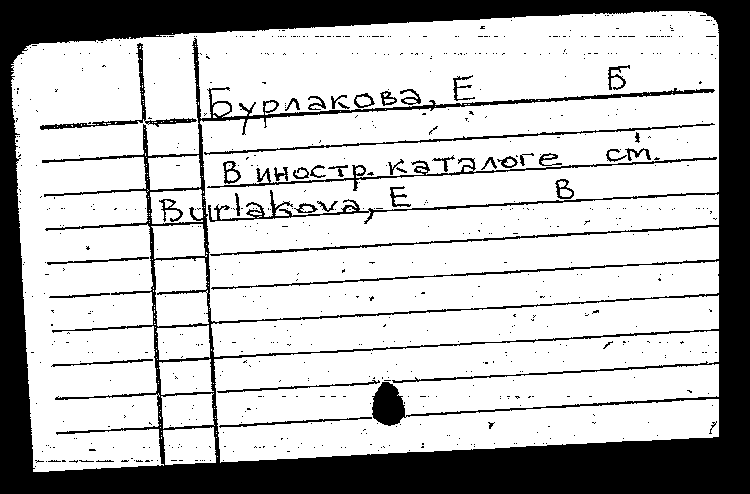 Бурлакова, Е Б
в иностр. каталоге см.
Burlakova, E B